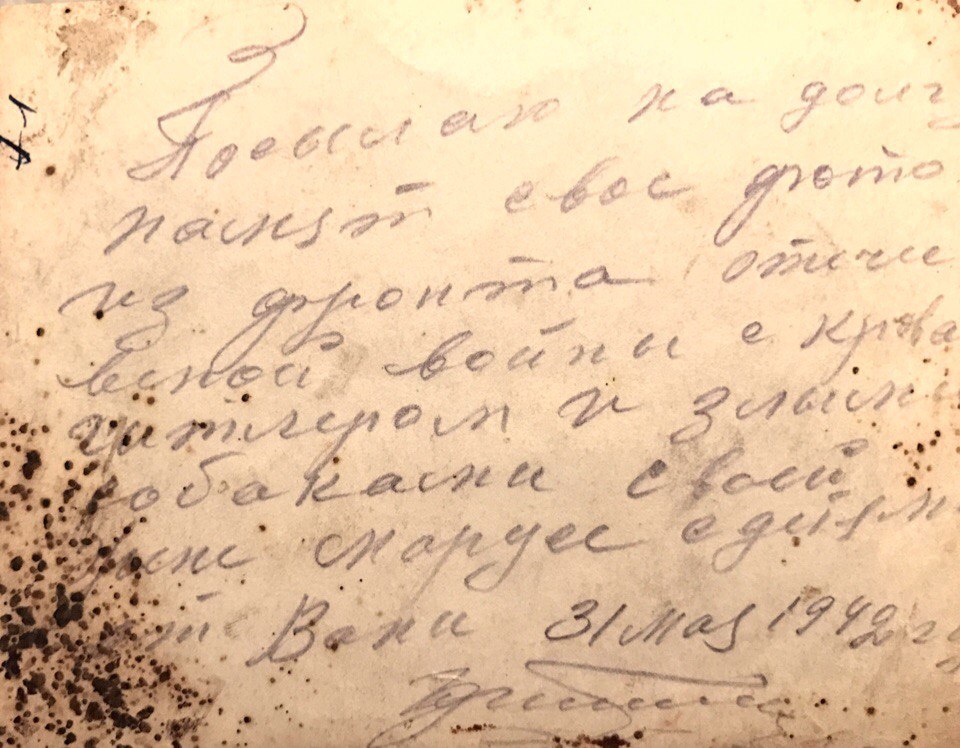 Посылаю на долг
памят свое фото
из фронта отиче
веной войны с крова
гитлером и злыми
собаками своей
жене Марусе с дитям
от Вани 31 мая 1942 г